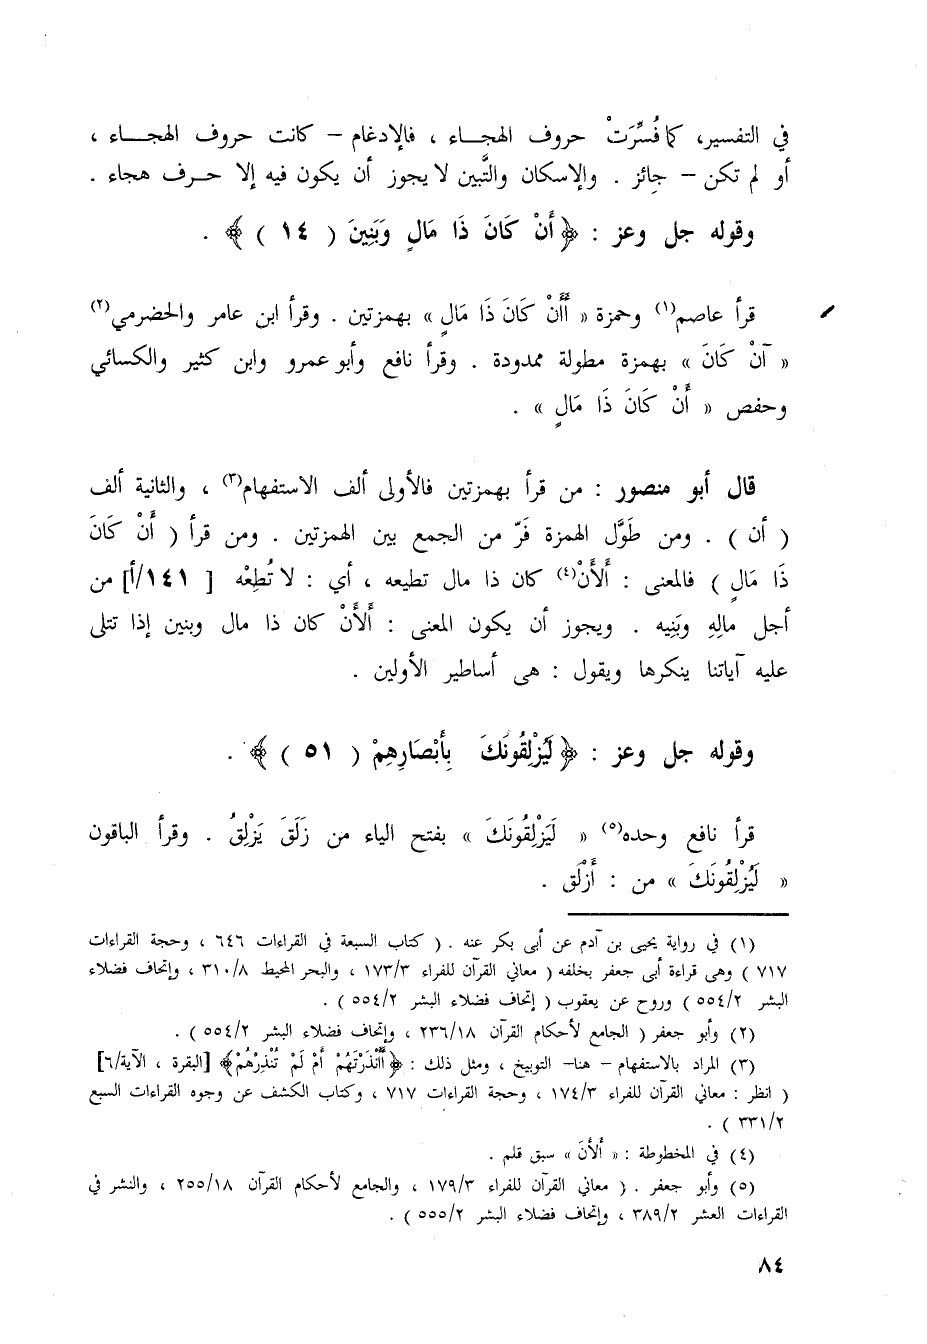 في التفسير، كما فُسِّرَتْ حروف الهجـــاء ، فالإدغام – كانت حروف الهجـــاء ،
أو لم تكن – جائز . والإسكان والتَّبين لا يجوز أن يكون فيه إلا حــرف هجاء .
وقوله جل وعز : ﴿ أَنْ كَانَ ذَا مَالٍ وَبَنِينَ ( ١٤ ) ﴾ .
قرأ عاصم(١) وحمزة « أَأَنْ كَانَ ذَا مَالٍ » بهمزتين . وقرأ ابن عامر والحضرمي(٢)
« آنْ كَانَ » بهمزة مطولة ممدودة . وقرأ نافع وأبو عمرو وابن كثير والكسائي
وحفص « أَنْ كَانَ ذَا مَالٍ » .
قال أبو منصور : من قرأ بهمزتين فالأولى ألف الاستفهام(٣) ، والثانية ألف
( أن ) . ومن طَوَّل الهمزة فَرّ من الجمع بين الهمزتين . ومن قرأ ( أَنْ كَانَ
ذَا مَالٍ ) فالمعنى : أَلَأَنْ(٤) كان ذا مال تطيعه ، أي : لا تُطِعْه [ ١٤١/أ] من
أجل مالِهِ وبَنِيه . ويجوز أن يكون المعنى : أَلَأَنْ كان ذا مال وبنين إذا تتلى
عليه آياتنا ينكرها ويقول : هى أساطير الأولين .
وقوله جل وعز : ﴿ لَيُزْلِقُونَكَ بِأَبْصَارِهِمْ ( ٥١ ) ﴾ .
قرأ نافع وحده(٥) « لَيَزْلِقُونَكَ » بفتح الياء من زَلَقَ يَزْلِقُ . وقرأ الباقون
« لَيُزْلِقُونَكَ » من : أَزْلَق .
(١) في رواية يحيى بن آدم عن أبى بكر عنه . ( كتاب السبعة في القراءات ٦٤٦ ، وحجة القراءات
٧١٧ ) وهى قراءة أبى جعفر بخلفه ( معاني القرآن للفراء ١٧٣/٣ ، والبحر المحيط ٣١٠/٨ ، وإتحاف فضلاء
البشر ٥٥٤/٢ ) وروح عن يعقوب ( إتحاف فضلاء البشر ٥٥٤/٢ ) .
(٢) وأبو جعفر ( الجامع لأحكام القرآن ٢٣٦/١٨ ، وإتحاف فضلاء البشر ٥٥٤/٢ ) .
(٣) المراد بالاستفهام – هنا– التوبيخ ، ومثل ذلك : ﴿ أَأَنْذَرْتَهُمْ أَمْ لَمْ تُنْذِرْهُمْ ﴾ [البقرة ، الآية/٦]
( انظر : معاني القرآن للفراء ١٧٤/٣ ، وحجة القراءات ٧١٧ ، وكتاب الكشف عن وجوه القراءات السبع
٣٣١/٢ ) .
(٤) في المخطوطة : « ألَأن » سبق قلم .
(٥) وأبو جعفر . ( معاني القرآن للفراء ١٧٩/٣ ، والجامع لأحكام القرآن ٢٥٥/١٨ ، والنشر في
القراءات العشر ٣٨٩/٢ ، وإتحاف فضلاء البشر ٥٥٥/٢ ) .
٨٤